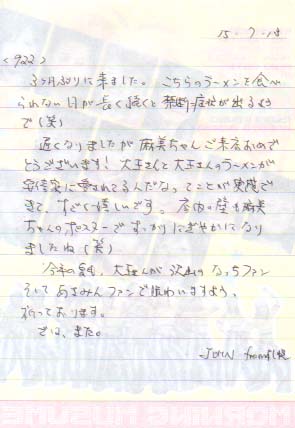 15.7.18
<922>
3ヶ月ぶりに来ました。こちらのラーメンを食べ
られない日が長く続くと禁断症状が出るよう
で(笑)
遅くなりましたが麻美ちゃんご来店おめで
とうございます! 大王さんと大王さんのラーメンが
に愛されてるんだなってことが実感で
きて、すごく嬉しいです。店内の壁も麻美
ちゃんのポスターですっかりにぎやかになり
ましたね(笑)
今年の夏も、大王さんが沢山のなっちファン
そしてあさみんファンで賑わいますよう、
祈っております。
では、また。
-JOHN from
MORNING MUSUME